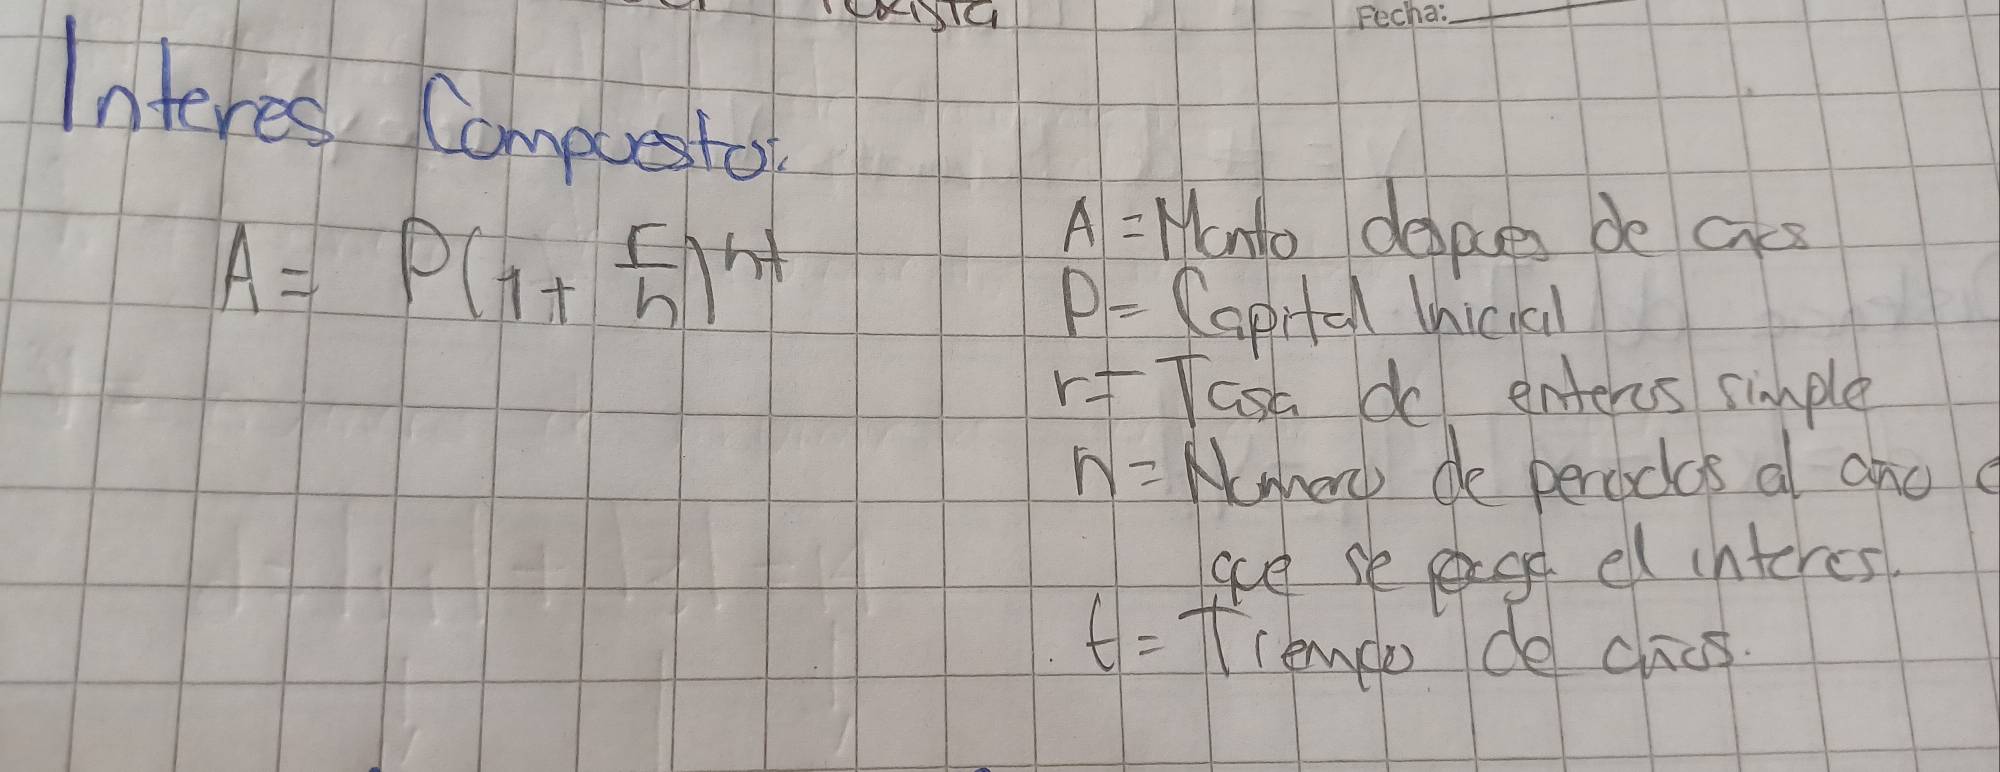 Fecha:
Interes Compuesto:
A = P(1 + r/n)^nt
A = Monto despues de años
P = Capital Inicial
r = Tasa de enteres simple
n = Numero de periodos al año
que se paga el interes.
t = Tiempo de años.